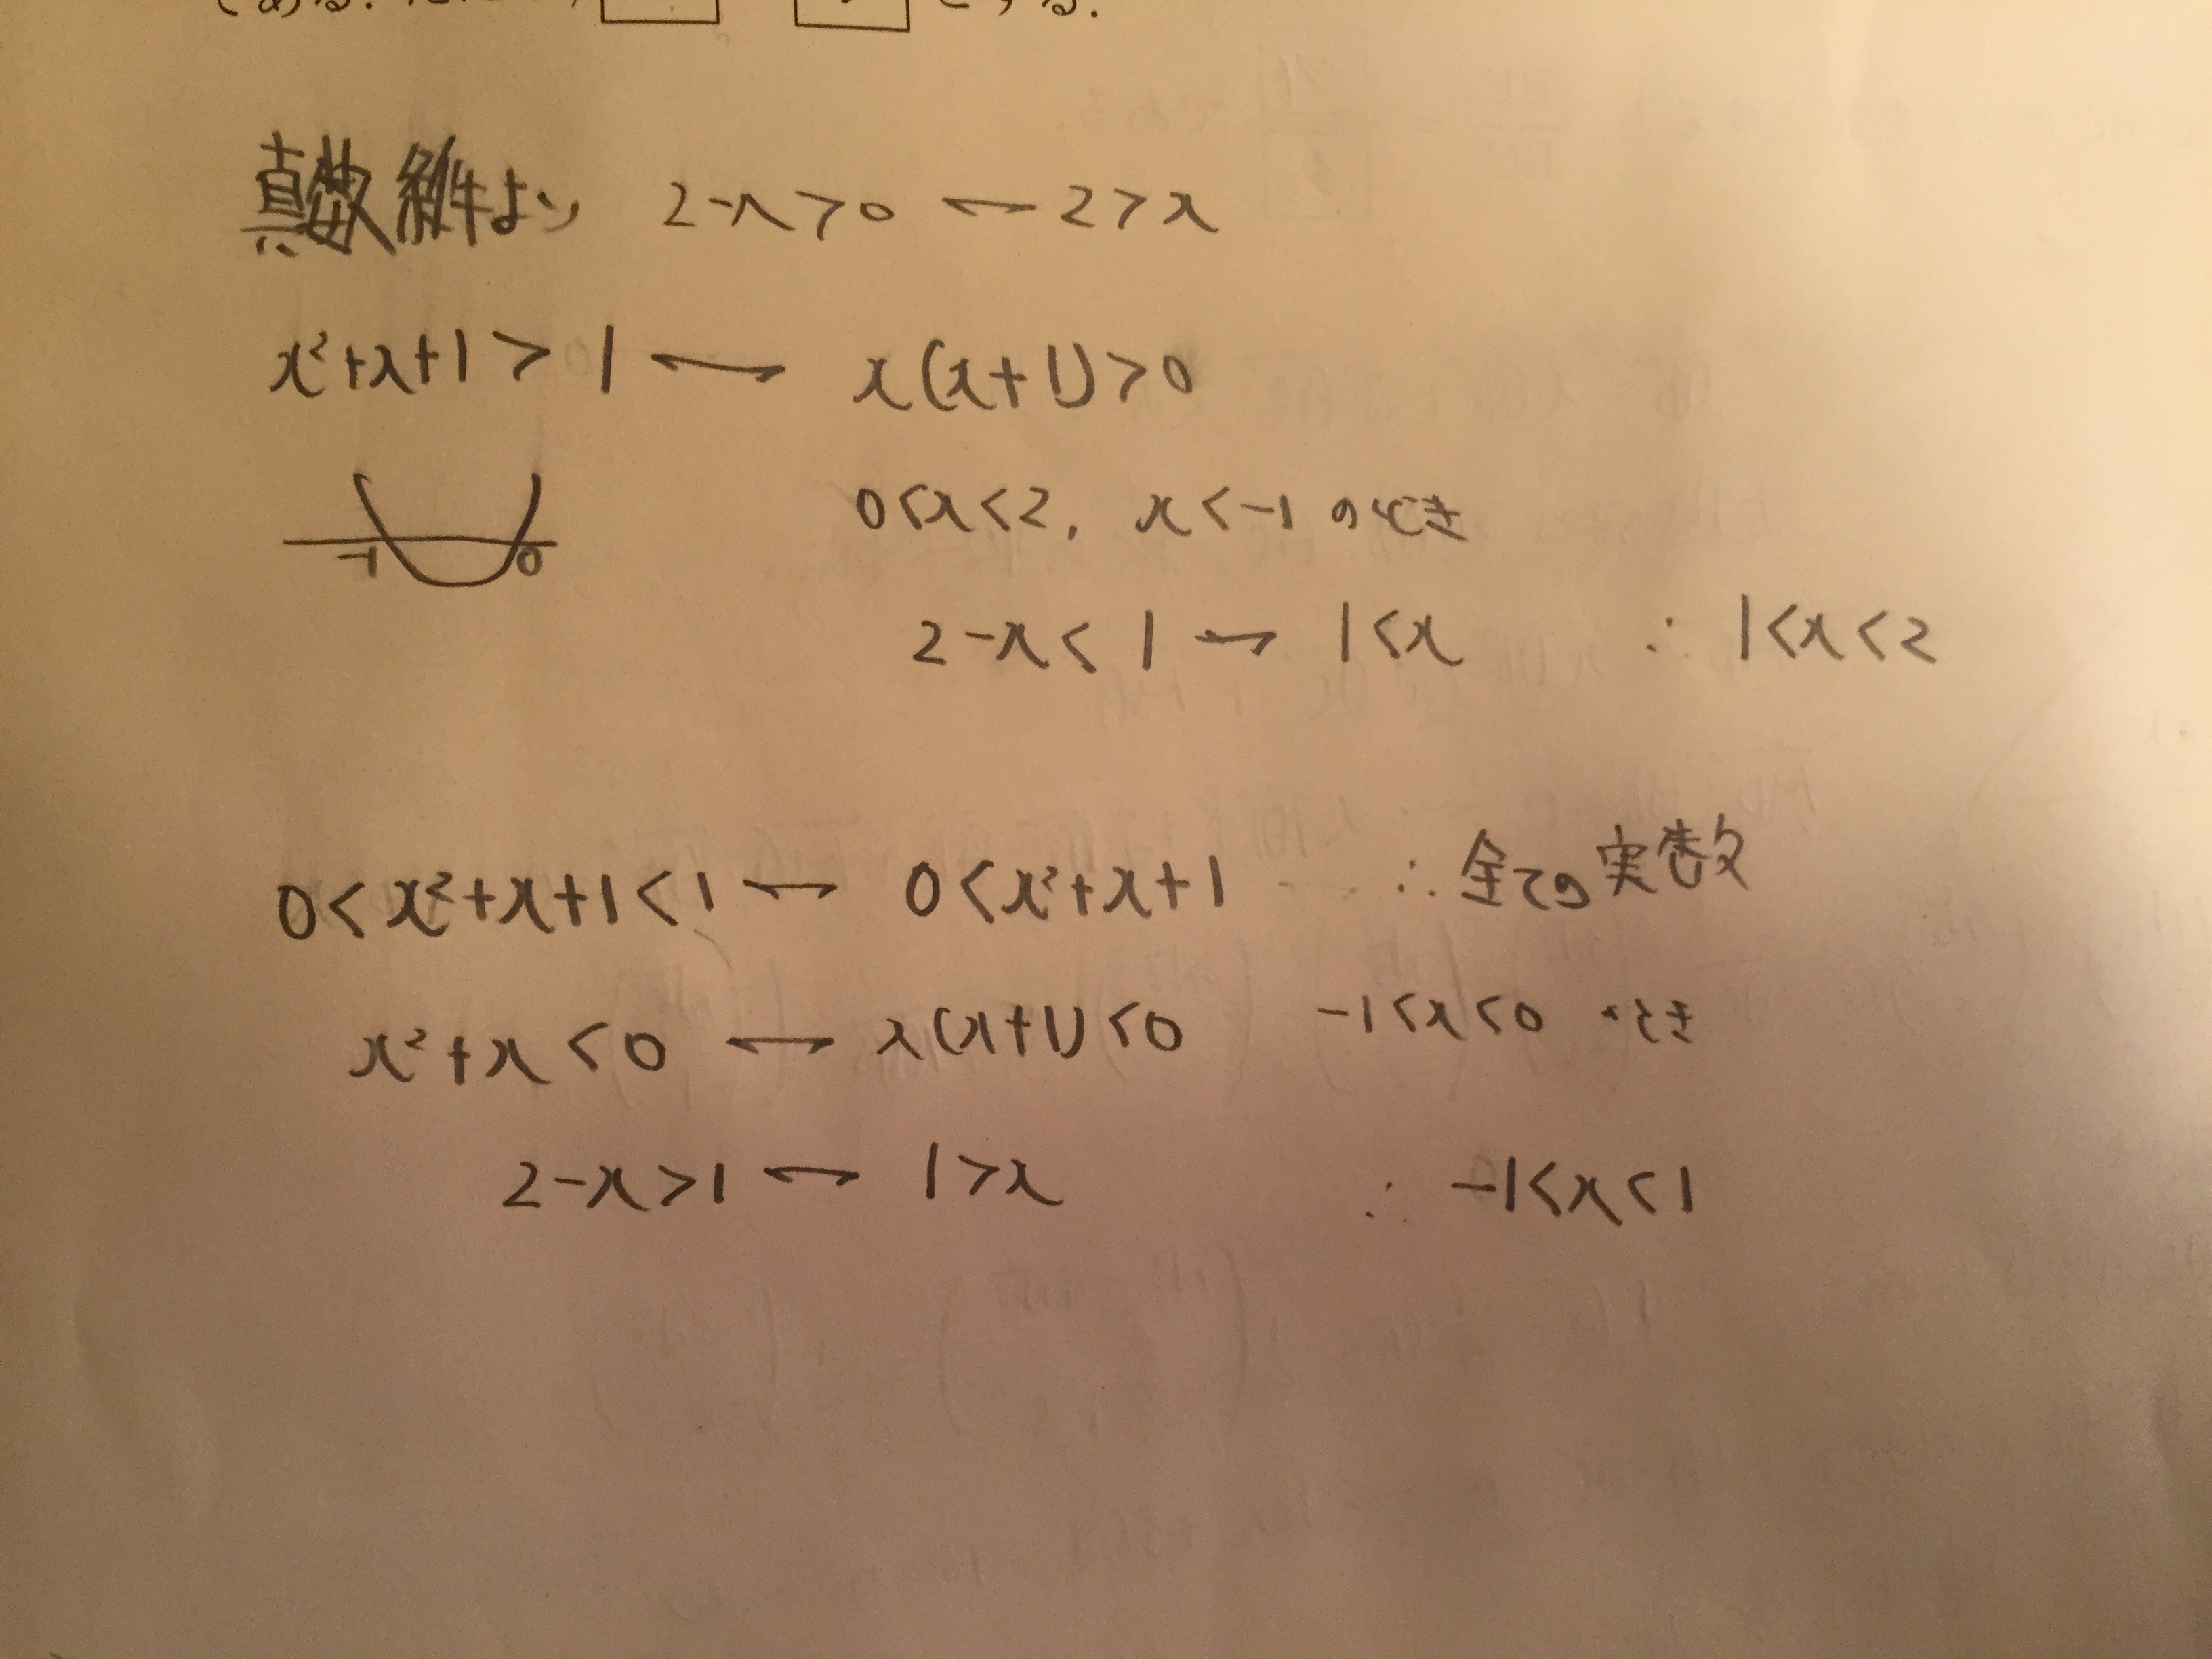 である. ただし, とする.
真数条件より 2-x>0 ⇔ 2>x
x²+x+1>1 ⇔ x(x+1)>0
-1 0
0<x<2, x<-1 のとき
2-x<1 ⇔ 1<x ∴ 1<x<2
0<x²+x+1<1 ⇔ 0<x²+x+1 ∴ 全ての実数
x²+x<0 ⇔ x(x+1)<0 -1<x<0 のとき
2-x>1 ⇔ 1>x ∴ -1<x<1